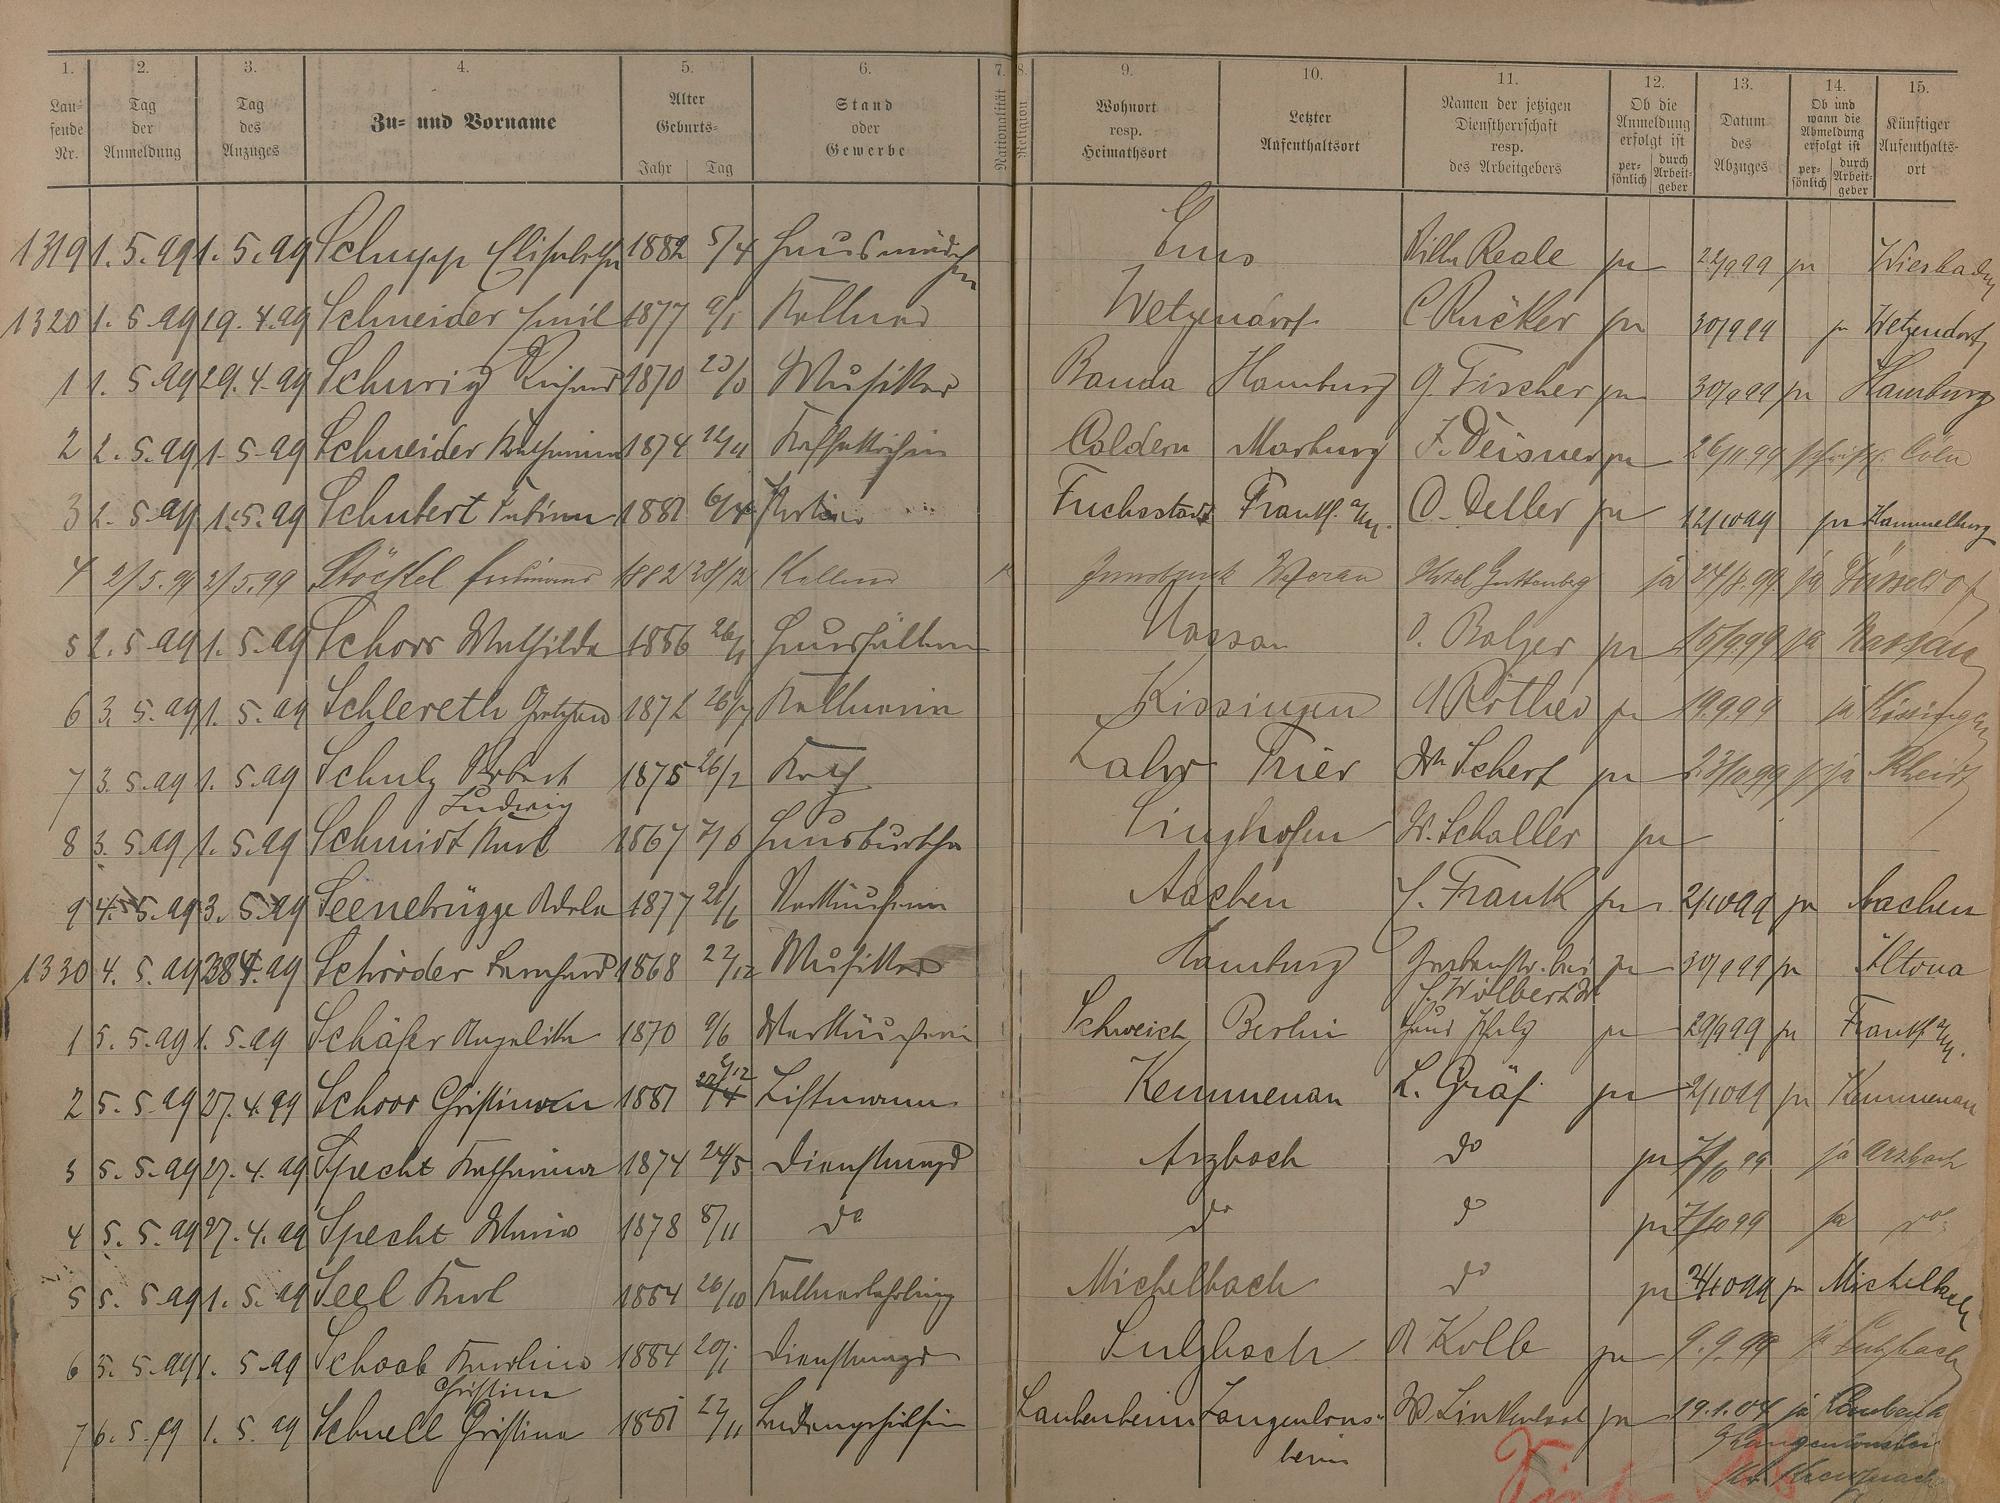 1. 2. 3. 4. 5. 6. 7. 8. 9. 10. 11. 12. 13. 14. 15.
Laufende Nr. Tag der Anmeldung Tag des Anzuges Zu- und Vorname Alter Geburts- Jahr Tag Stand oder Gewerbe Nationalität Religion Wohnort resp. Heimathsort Letzter Aufenthaltsort Namen der jetzigen Dienstherrschaft resp. des Arbeitgebers Ob die Anmeldung erfolgt ist persönlich durch Arbeitgeber Datum des Abzuges Ob und wann die Abmeldung erfolgt ist persönlich durch Arbeitgeber Künftiger Aufenthaltsort
1319 1. 5. 99 1. 5. 99 Schupp Elisabetha 1882 5/4 Hausmädchen Ems Wilh. Reale ja 22/9 99 ja Wiesbaden
1320 1. 5. 99 19. 4. 99 Schneider Emil 1877 9/1 Kellner Wetzendorf C Rücker ja 30/9 99 ja Wetzendorf
1 1. 5. 99 29. 4. 99 Schurig Richard 1870 Musiker Banda Hamburg G. Fischer ja 30/9 99 ja Hamburg
2 2. 5. 99 1. 5. 99 Schneider Katharina 1874 Kaffeeköchin Caldern Marburg F. Deisner ja 26/11 99 Cöln
3 2. 5. 99 1. 5. 99 Schubert 1881 6/4 Portier Fuchsstadt Frankf. a/M. O. Deller ja 12/10 99 ja Hammelburg
4 2/5. 99 2/5. 99 Stöckel Ferdinand 1882 28/12 Kellner Innsbruck Meran Hotel Guttenberg ja 24/8. 99. ja Düsseldorf
5 2. 5. 99 1. 5. 99 Schors Mathilde 1856 26/11 Haushälterin Nassau O. Balzer ja 15/9 99 ja Nassau
6 3. 5. 99 1. 5. 99 Schlereth 1872 26/7 Kellnerin Kissingen A Röther ja 19. 9. 99 ja Kissingen
7 3. 5. 99 1. 5. 99 Schulz Robert 1875 26/2 Koch Lahr Trier Wn Scherf ja 23/10 99 ja Rheidt
Ludwig
8 3. 5. 99 1. 5. 99 Schmidt Karl 1867 7/6 Hausbursche Singhofen W. Schaller ja
9 4. 5. 99 3. 5. 99 Seenebrügge Adele 1877 21/6 Verkäuferin Aachen J. Frank ja 2/10 99 ja Aachen
1330 4. 5. 99 28 4. 99 Schröder Bernhard 1868 22/12 Musiker Hamburg Grabenstr. bei ja 30/9 99 ja Altona
J. Wolbert Wt
1 5. 5. 99 1. 5. 99 Schäfer Angelika 1870 9/6 Verkäuferin Schweich Berlin ja 29/9 99 ja Frankf a/M.
2 5. 5. 99 27. 4. 99 Schoor Christian 1881 9/12 Liftmann Kemmenau L. Gräf ja 2/10 99 ja Kemmenau
3 5. 5. 99 27. 4. 99 Specht Katharina 1874 24/5 Dienstmagd Arzbach do ja 7/10 99 ja Arzbach
4 5. 5. 99 27. 4. 99 Specht Maria 1878 8/11 do do do ja 7/10 99 ja do
5 5. 5. 99 1. 5. 99 Seel Karl 1884 26/10 Kellnerlehrling Michelbach do ja 2/10 99 ja Michelbach
6 5. 5. 99 1. 5. 99 Schaab Karolina 1884 20/1 Dienstmagd Sulzbach A Kolb ja 9. 9. 99 ja Sulzbach
Christina
7 6. 5. 99 1. 5. 99 Schnell Christina 1881 22/11 Ladengehülfin Laubenheim Langenlons- W. Linkenbach ja 19. 1. 04 ja
heim
Langenlonsheim
Kr. Kreuznach